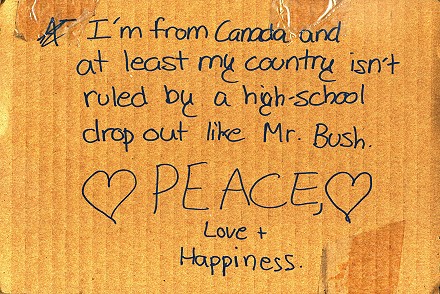 I'm from Canada and
at least my country isn't
ruled by a high-school
drop out like Mr. Bush.
♡ PEACE, ♡
Love +
Happiness.